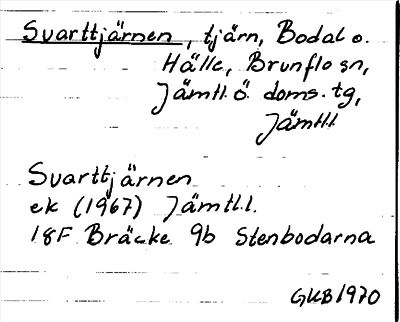 Svarttjärnen, tjärn, Bodal o.
Hälle, Brunflo sn,
Jämtl. ö. doms. tg,
Jämtl.l
Svarttjärnen
ek (1967) Jämtl.l.
18F Bräcke 9b Stenbodarna
GKB 1970